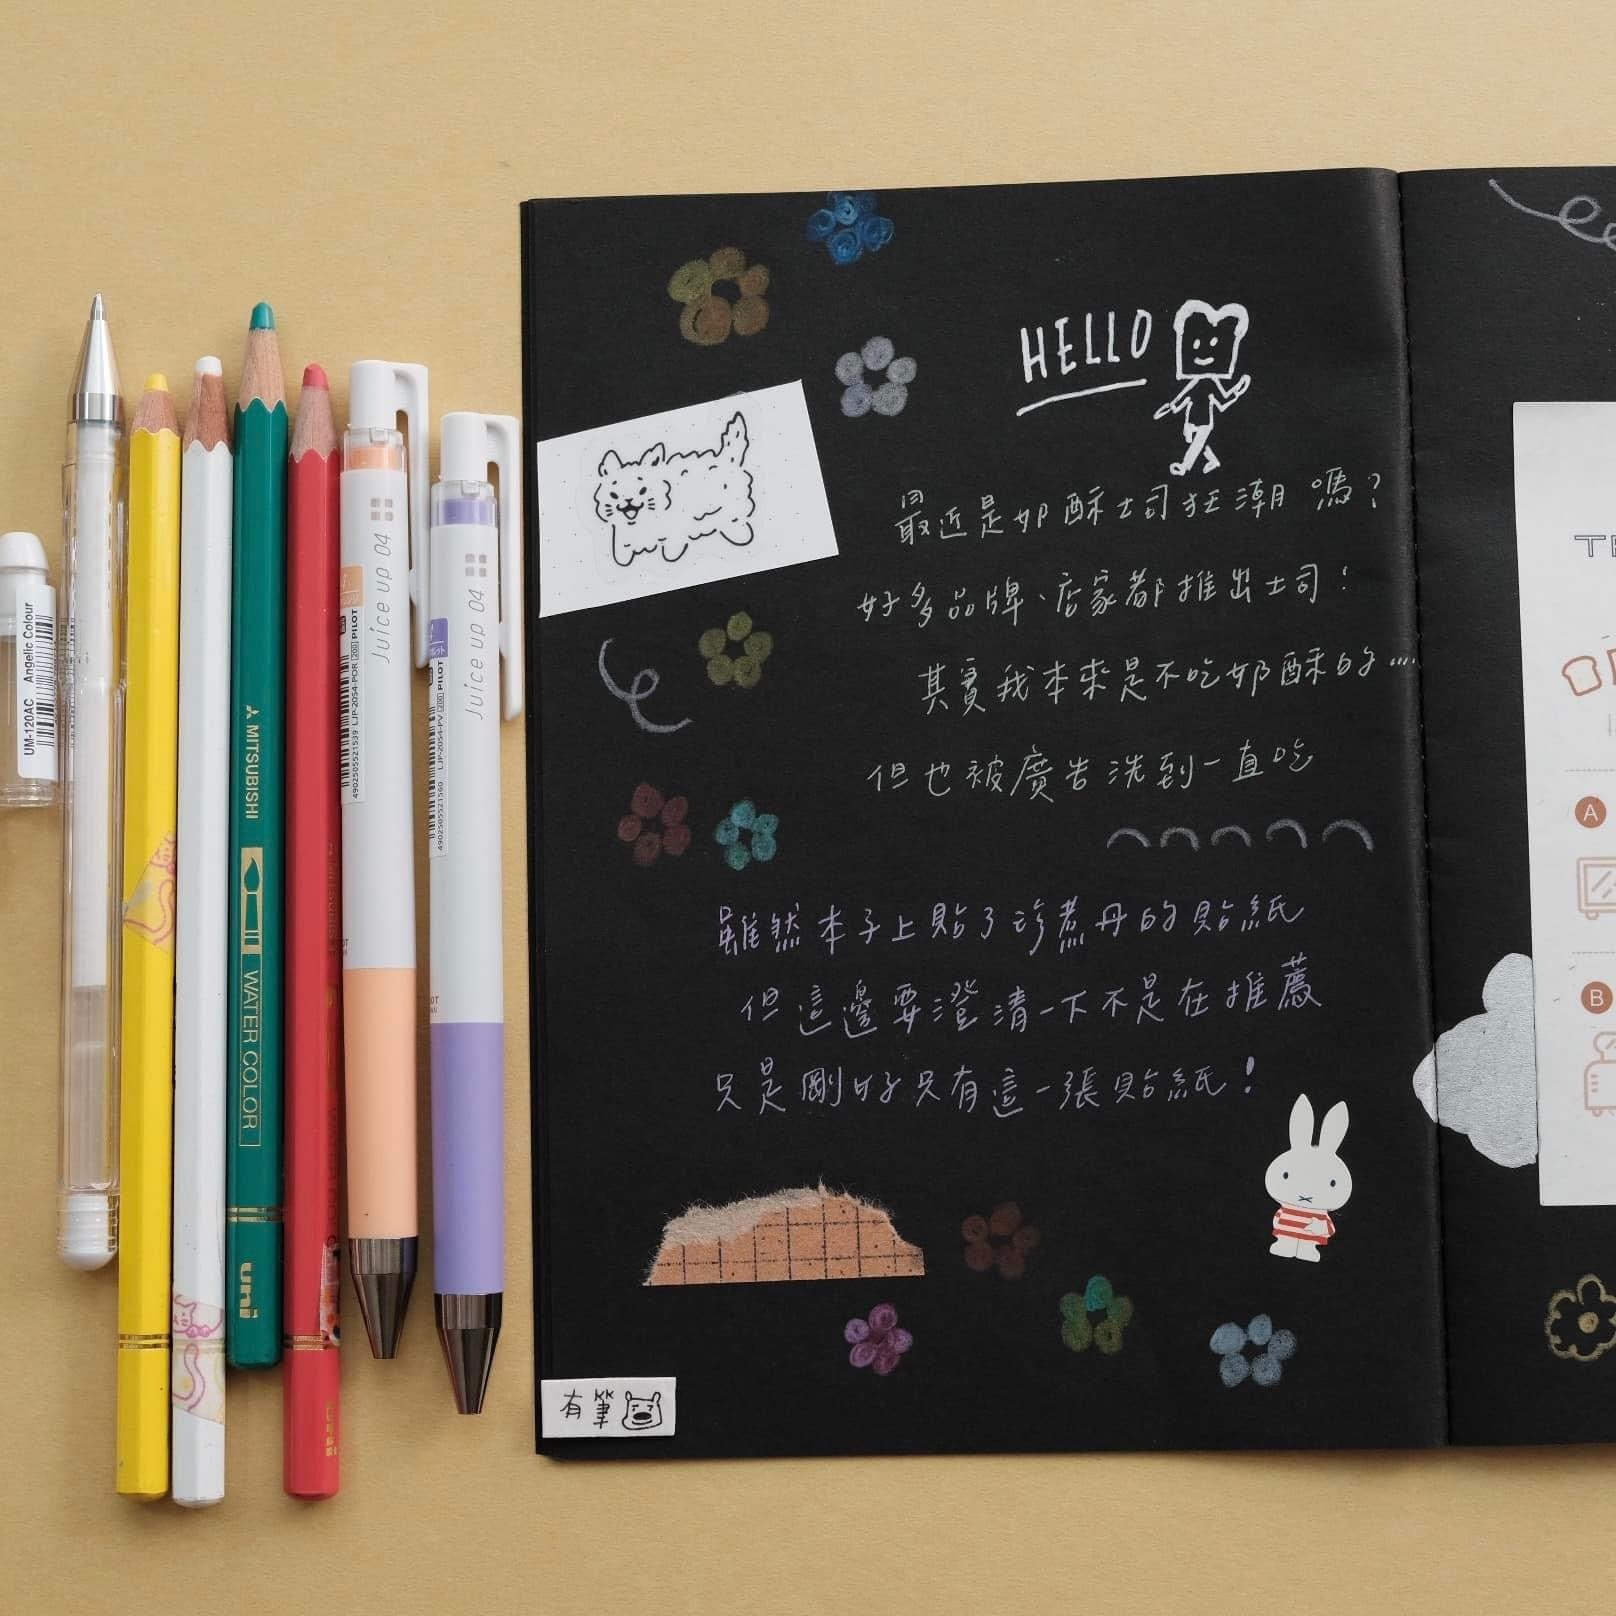 HELLO
最近是奶酥土司狂潮嗎？
好多品牌、店家都推出土司！
其實我本來是不吃奶酥的…
但也被廣告洗到一直吃
雖然本子上貼了珍煮丹的貼紙
但這邊要澄清一下不是在推薦
只是剛好只有這一張貼紙！
有筆
UM-120AC Angelic Colour
MITSUBISHI
WATER COLOR
uni
Juice up 04
PILOT
4902505521539 LJP-20S4-POR [200]
Juice up 04
PILOT
4902505521560 LJP-20S4-PV [200]
A
B